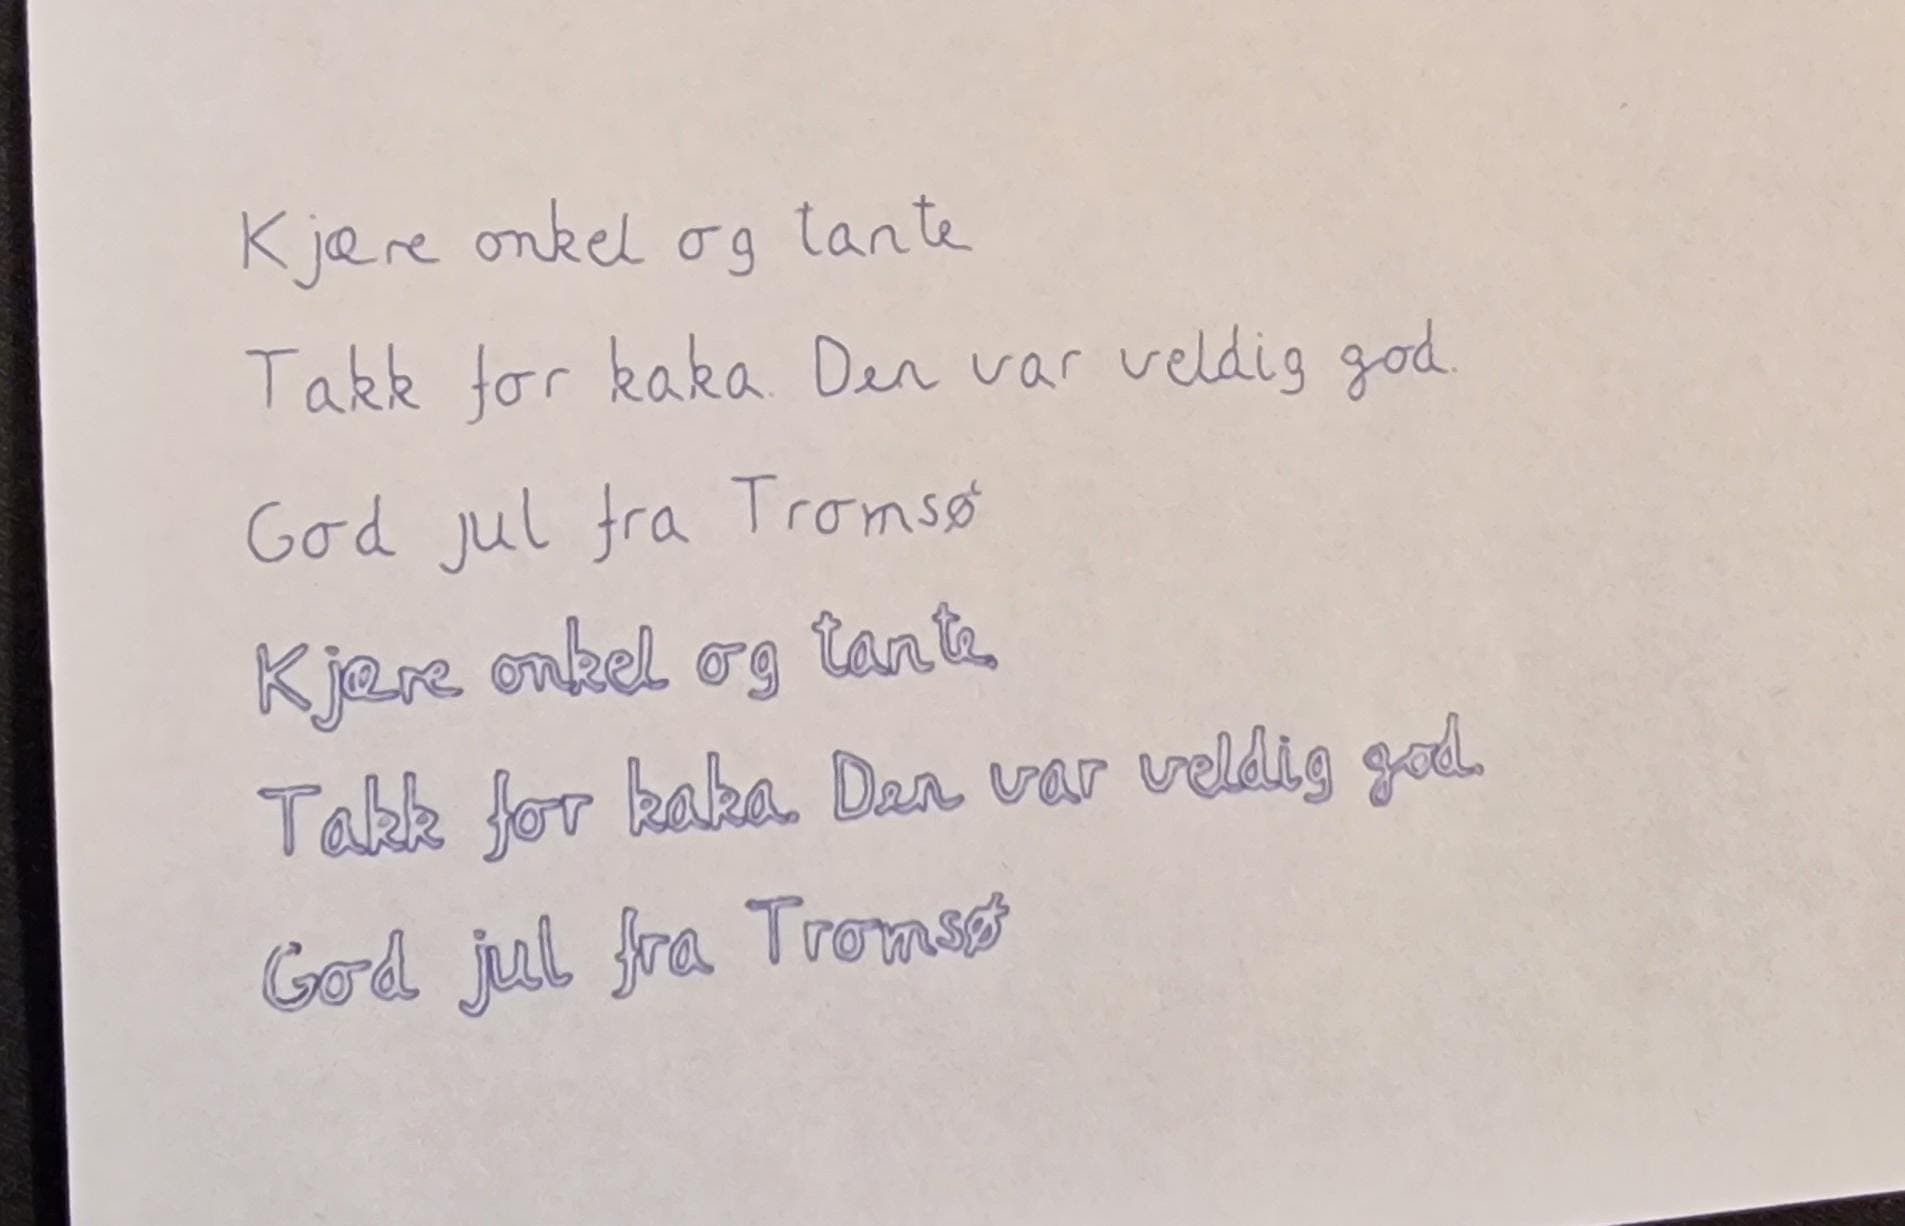 Kjære onkel og tante
Takk for kaka. Den var veldig god.
God jul fra Tromsø
Kjære onkel og tante.
Takk for kaka. Den var veldig god.
God jul fra Tromsø